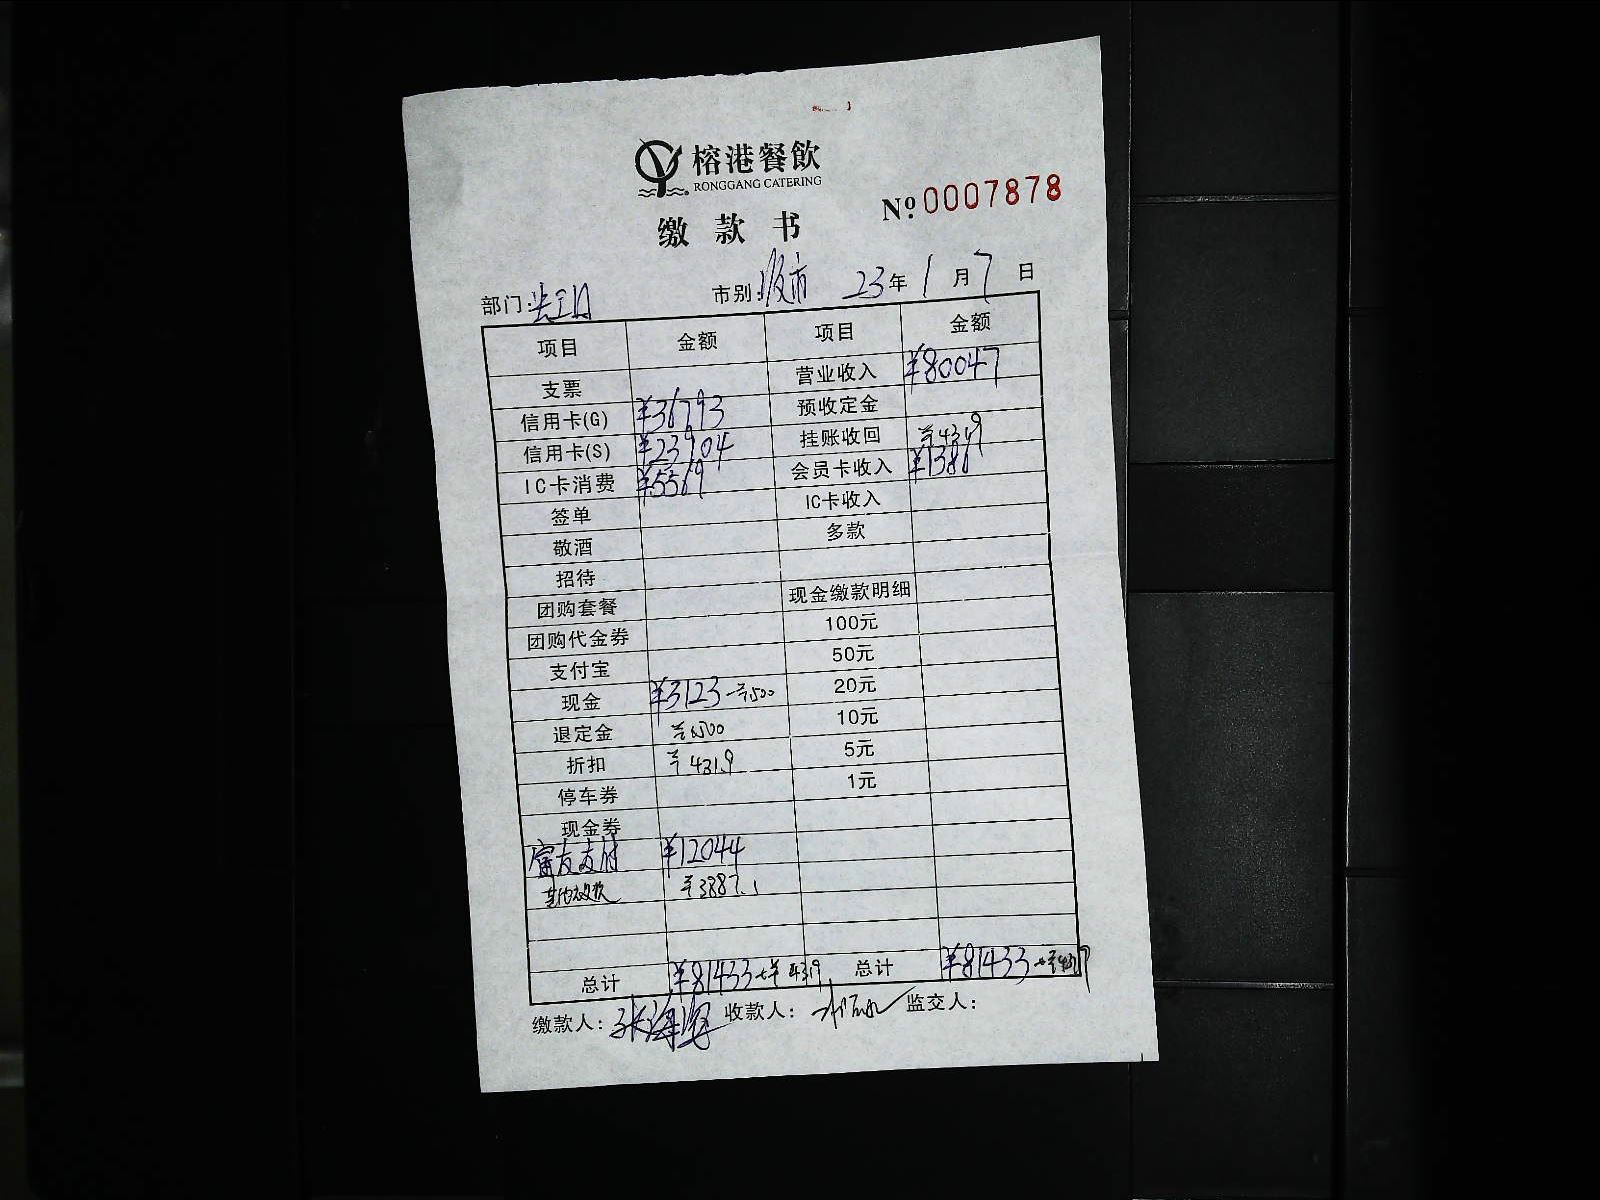 榕港餐飲
RONGGANG CATERING
缴款书
No.0007878
部门: 市别: 23年1月7日
项目 金额 项目 金额
支票 营业收入 ¥80047
信用卡(G) ¥36793 预收定金
信用卡(S) ¥23904 挂账收回
IC卡消费 ¥5569 会员卡收入 ¥1386
签单 IC卡收入
敬酒 多款
招待
团购套餐 现金缴款明细
团购代金券 100元
支付宝 50元
现金 ¥3123 20元
退定金 10元
折扣 5元
停车券 1元
现金券
富友支付 ¥12044
¥3887.1
总计 ¥81433 总计 ¥81433
缴款人: 收款人: 监交人: